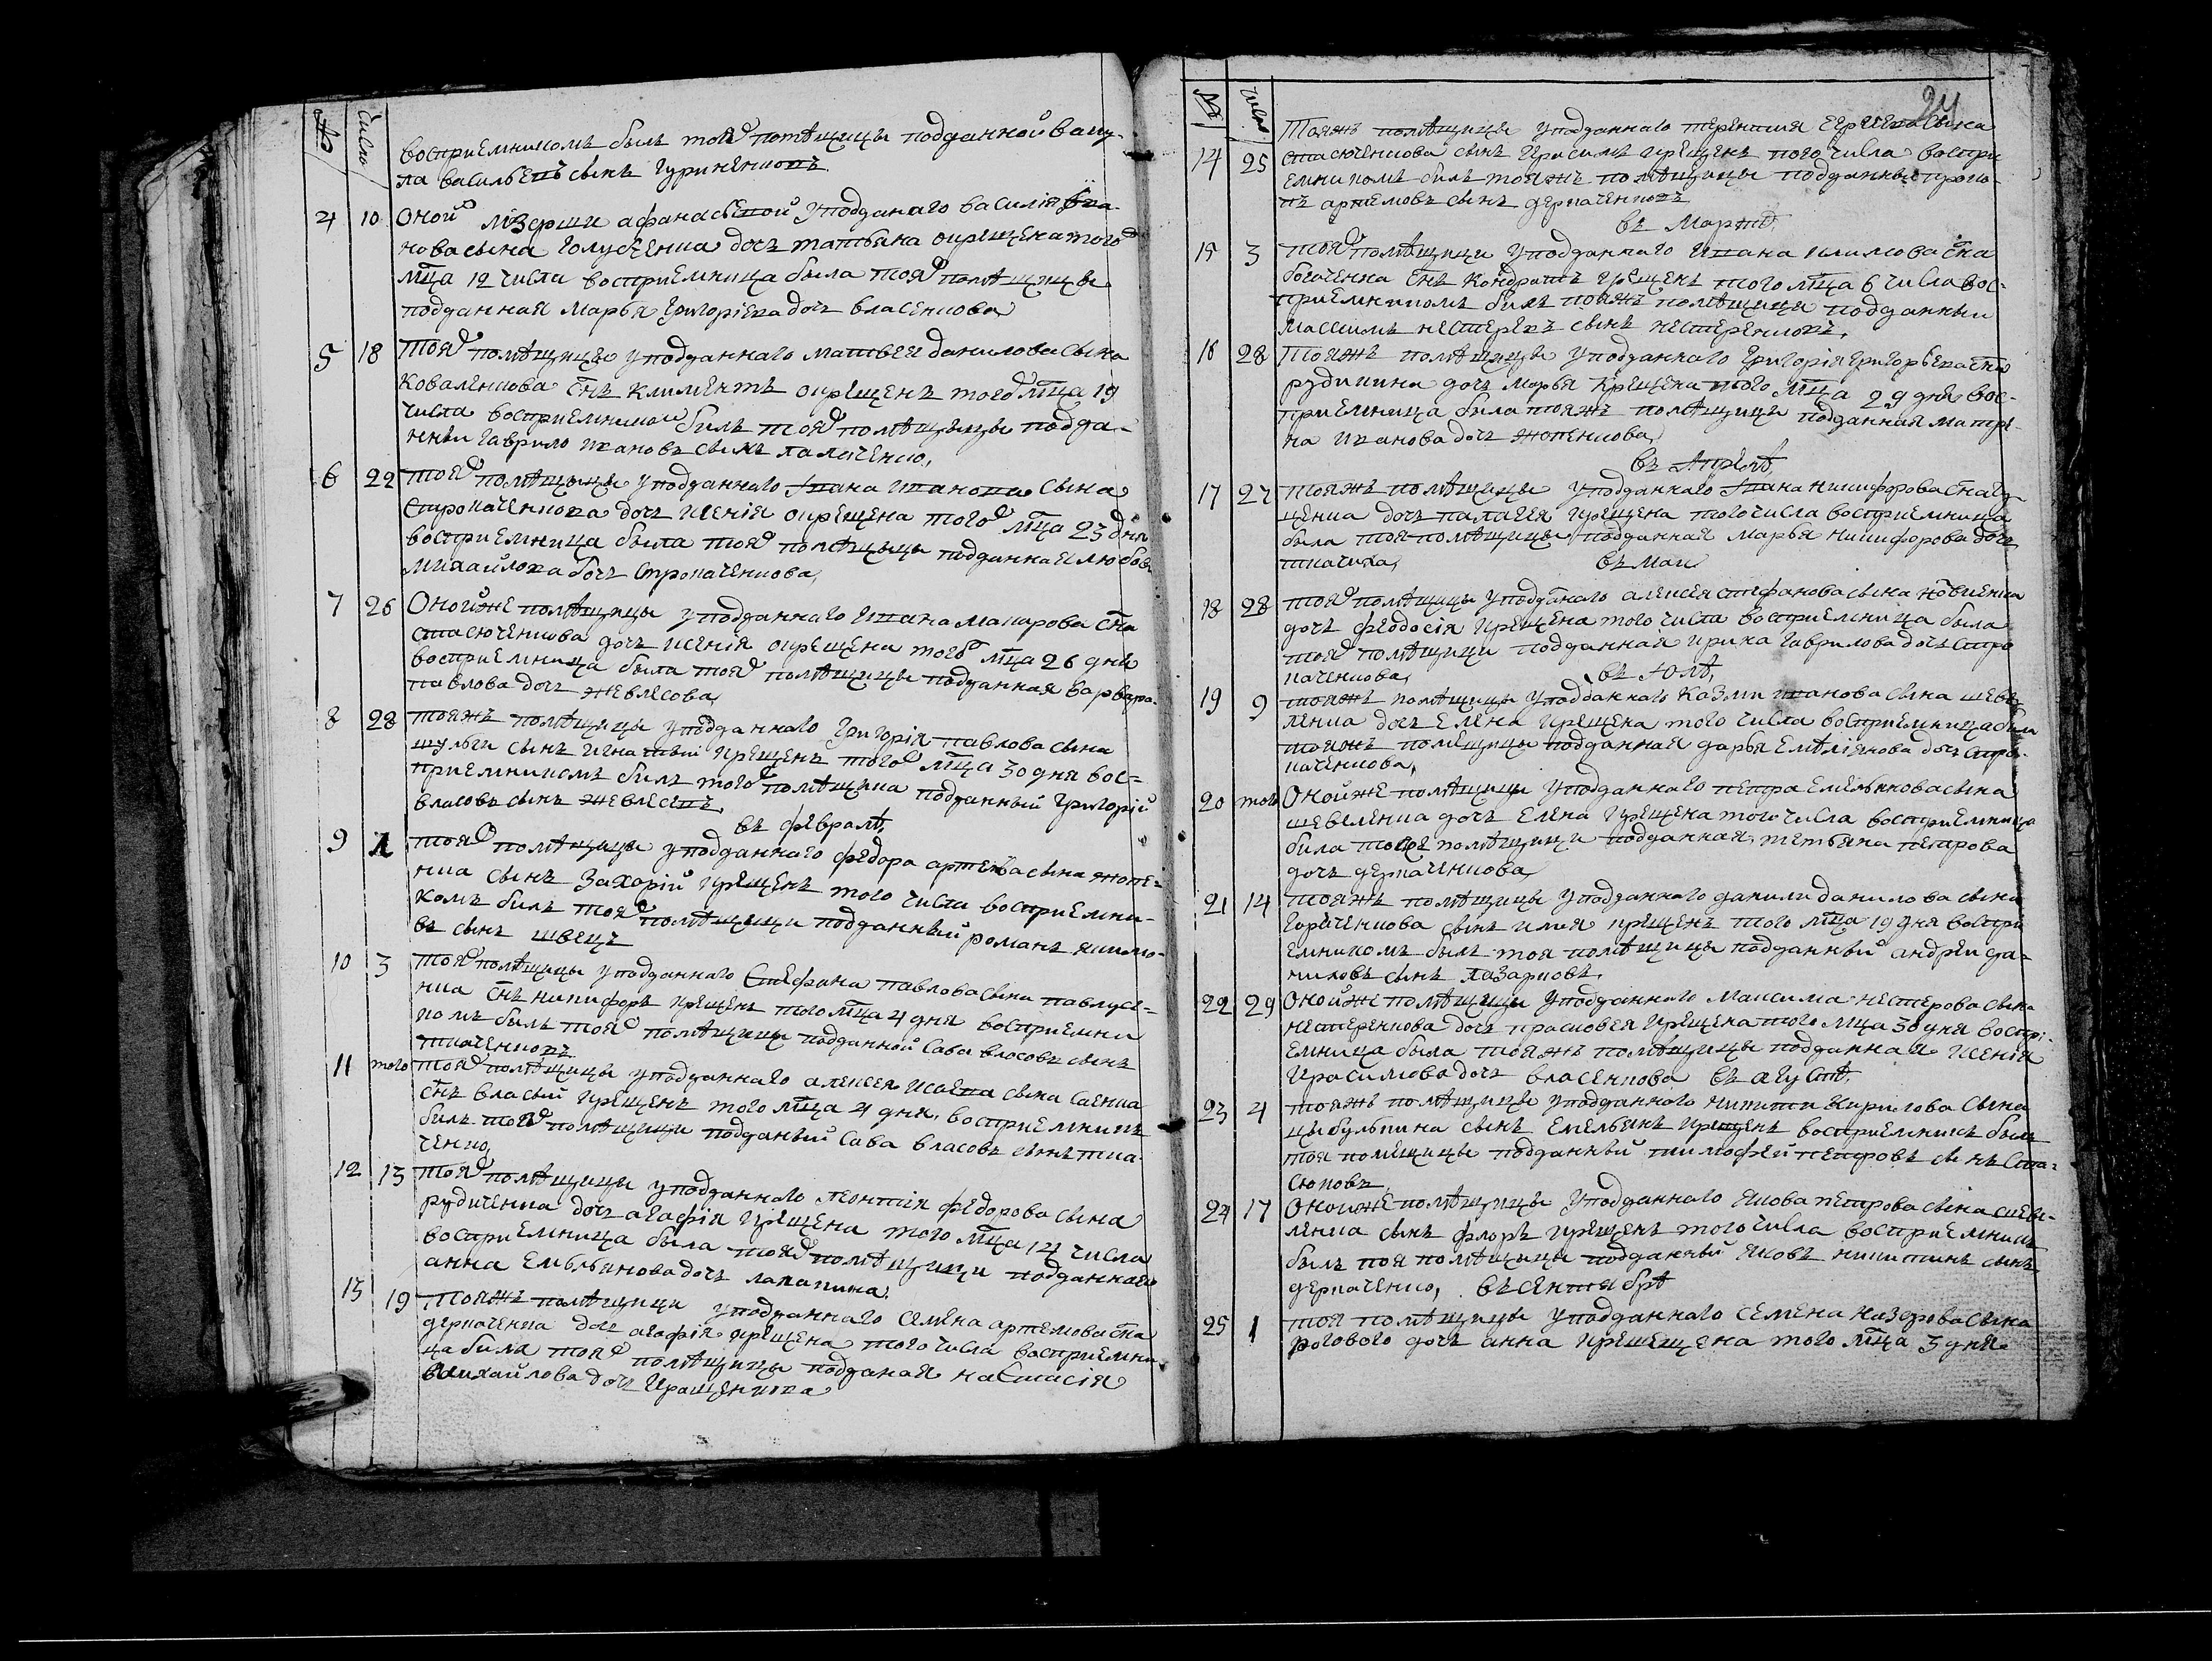 № число
восприемникомъ былъ тояж помѣщицы подданной ваку-
ла васильевъ сынъ гуриненковъ
4 10 Оной мізерши афанасьевой у подданаго василія ива-
нова сына голубенка дочъ татьяна окрещена того
мца 12 числа восприемница была тояж помѣщицы
подданная Марья Григоріева дочъ власенкова
5 18 Тояж помѣщицы у подданнаго матвея данилова сына
коваленкова снъ климентъ окрещенъ тогож мца 19
числа восприемникомъ былъ тояж помѣщицы подда-
нный гаврило ивановъ сынъ
6 22 тояж помѣщыцы у подданнаго Ивана иванова сына
Стропаченкова дочъ ксенія окрещена тогож мца 23 дня
восприемница была тояж помѣщыцы подданная любовъ
михайлова дочъ Стропаченкова
7 26 Онойже помѣщицы у подданнаго ивана макарова сна
стасюченкова дочъ ксенія окрещена тогож мца 26 дня
восприемница была тояж помѣщицы подданная варвара
павлова дочъ жевлесова
8 28 тояжъ помѣщицы у подданнаго Григорія павлова сына
шульги сынъ игнатий крещенъ тогож мца 30 дня вос-
приемникомъ былъ того помѣщика подданный григорій
власовъ сынъ
въ февралѣ
9 1 тояж помѣщицы у подданнаго федора артемова сына жопе-
нка сынъ Захорій крещенъ того числа восприемни-
комъ былъ тояж помѣщицы подданный романъ якимо-
въ сынъ швецъ
10 3 тояж помѣщицы у подданнаго Стефана павлова сына павлусе-
нка снъ никифоръ крещенъ того мца 4 дня восприемни
комъ былъ тояж помѣщицы подданной Сава власовъ сынъ
ткаченковъ
11 того тояж помѣщицы у подданнаго алексея исаева сына саенка
снъ власий крещенъ того мца 4 дня восприемникъ
былъ тояж помѣщицы подданый Сава власовъ сынъ тка-
ченко
12 13 тояж помѣщицы у подданнаго леонтія федорова сына
рудиченка дочъ агафія крещена того мца 14 числа
восприемница была тояж помѣщицы подданная
анна емельянова дочъ лапатина
13 19 Тояжъ помѣщицы у подданнаго семена артемова сна
деркаченка дочъ агафія крещена того числа восприемни
ца была тояж помѣщицы поданая настасія
михайлова дочъ
24
№ число
14 25 Тояжъ помѣщицы у подданнаго терентия сергиева сына
стасюченкова сынъ Гарасимъ крещенъ того числа воспри
емникомъ былъ тояжъ помѣщицы подданный проко-
пъ артемовъ сынъ деркаченковъ
въ Мартѣ
15 3 тояж помѣщицы у подданнаго ивана климова сна
богаченка снъ Кондратъ крещенъ того мца 6 числа вос-
приемникомъ былъ тояжъ помѣщицы подданный
Максимъ нестеревъ сынъ нестеренковъ
16 28 Тояжъ помѣщицы у подданнаго Григорія григорьева сна
рудикина дочъ марья крещена того мца 29 дня вос-
приемница была тояжъ помѣщицы подданная матре-
на иванова дочъ жопенкова
въ Апрелѣ
17 27 тояжъ помѣщицы у подданнаго Ивана никифорова сна гу-
ценка дочъ палагея крещена того числа восприемница
была тоя помѣщицы подданная марья никифорова дочъ
ткачика
въ маи
18 28 тояж помѣщицы у поданаго алексея стефанова сына новиенка
дочъ феодосія крещена того числа восприемница была
тояж помѣщицы подданная ирина гаврилова дочъ Стро
паченкова
въ Юлѣ
19 9 тояжъ помѣщицы у подданнаго казми иванова сына шеве-
ленка дочъ елена крещена того числа восприемница была
тояжъ помещицы подданная дарья емелянова дочъ Стро-
паченкова
20 того Онойже помѣщицы у подданнаго петра емельянова сына
шевеленка дочъ Елена крещена того числа восприемница
была тояже помѣщици подданная, тетьяна петрова
дочъ деркаченкова
21 14 тояжъ помѣщицы у подданнаго данили данилова сына
гораченкова сынъ илия крещенъ того мца 19 дня воспри
емникомъ былъ тоя помѣщицы подданный андрей да-
ниловъ сынъ лазарковъ
22 29 Онойже помѣщицы у подданнаго максима нестерова сына
нестеренкова дочъ прасковея крещена того мца 30 дня воспрі-
емница была тояжъ помѣщицы подданная ксенія
Гарасимова дочъ власенкова въ агустѣ
23 4 тояжъ помѣщицы у подданнаго никити кирилова сына
цыбулькина сынъ Емельянъ крещенъ восприемникъ былъ
тоя помещицы подданный тимофей петровъ сынъ Ста-
сюковъ
24 17 Онойже помѣщицы у подданнаго якова петрова сына шеве-
ленка сынъ флоръ крещенъ того числа восприемникъ
былъ тоя помѣщицы подданый Яковъ никитинъ сынъ
деркаченко, въ сентябрѣ
25 1 тоя помѣщицы у подданнаго семена назарова сына
рогового дочъ анна крещещена того мца 3 дня